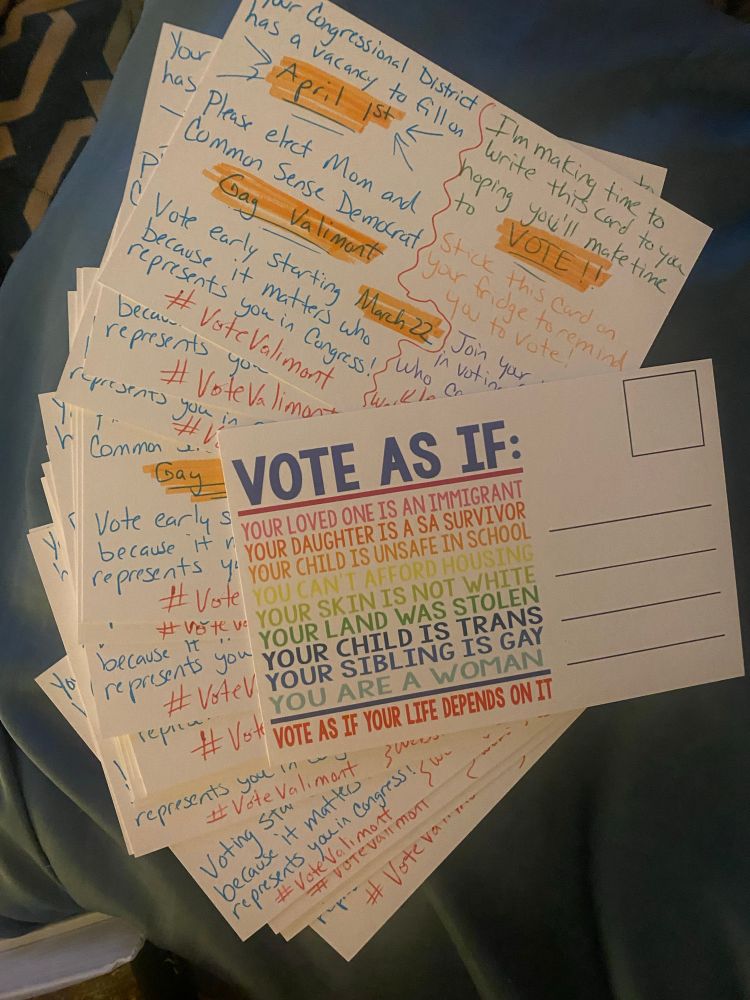 Your Congressional District
has a vacancy to fill on
April 1st
Please elect Mom and
Common Sense Democrat
Gay Valimont
Vote early starting
March 22
because it matters who
represents you in Congress!
#VoteValimont
I'm making time to
write this card to you
hoping you'll make time
to
VOTE!!
Stick this card on
your fridge to remind
you to vote!
Join your
in voting
who
Your
has
because
represents you
#VoteValimont
represents you in
Common
Gay
Vote early s
because it
represents you
#Vote
#Vote
because it
represents you
#VoteV
#Vote
represents you in
#VoteValimont
Voting Star
because it matters
represents you in Congress!
#VoteValimont
#VoteValimont
#VoteValimont
VOTE AS IF:
YOUR LOVED ONE IS AN IMMIGRANT
YOUR DAUGHTER IS A SA SURVIVOR
YOUR CHILD IS UNSAFE IN SCHOOL
YOU CAN'T AFFORD HOUSING
YOUR SKIN IS NOT WHITE
YOUR LAND WAS STOLEN
YOUR CHILD IS TRANS
YOUR SIBLING IS GAY
YOU ARE A WOMAN
VOTE AS IF YOUR LIFE DEPENDS ON IT